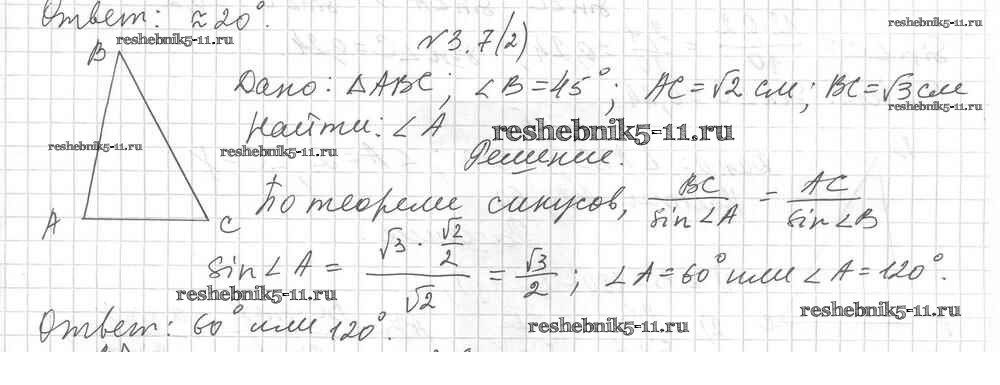 Ответ: ≈ 20°.
reshebnik5-11.ru
reshebnik5-11.ru
N 3.7(2)
B
Дано: △ABC; ∠B = 45°; AC = √2 см; BC = √3 см
reshebnik5-11.ru
Найти: ∠A
reshebnik5-11.ru
reshebnik5-11.ru
reshebnik5-11.ru
Решение.
По теореме синусов, BC/sin∠A = AC/sin∠B
A
C
sin∠A = (√3 · √2/2)/√2 = √3/2; ∠A = 60° или ∠A = 120°.
reshebnik5-11.ru
reshebnik5-11.ru
Ответ: 60° или 120°.
reshebnik5-11.ru